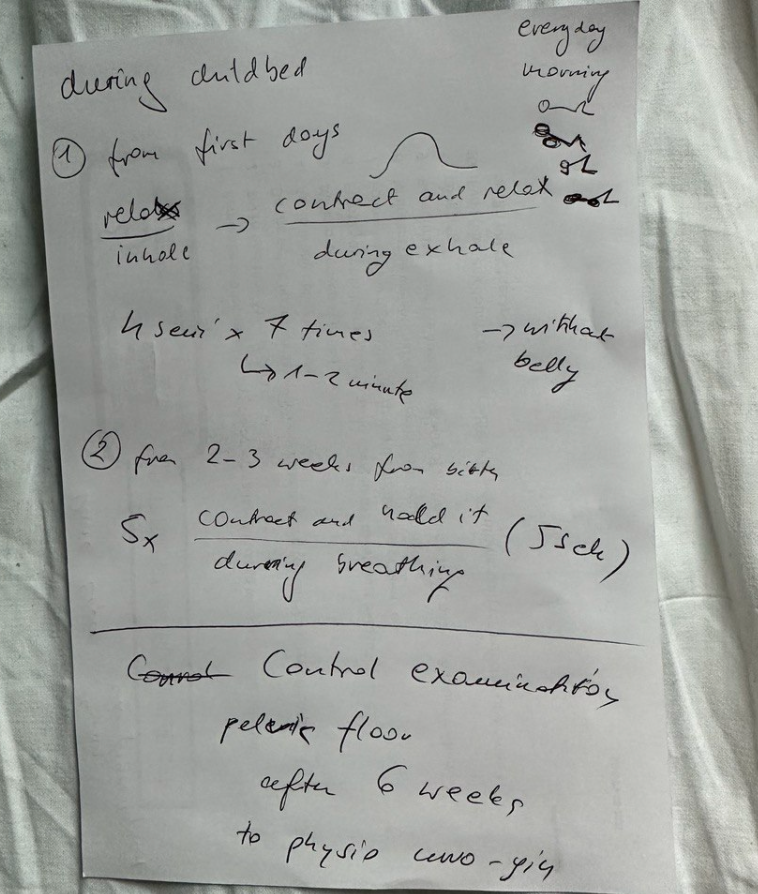 everyday
morning
during childbed
① from first days
relax → contract and relax
inhale during exhale
4 seri x 7 times → without
belly
↳ 1-2 minute
② from 2-3 weeks from birth
5x contract and hold it (5sek)
during breathing
Control examination
pelvic floor
after 6 weeks
to physio uro-gin